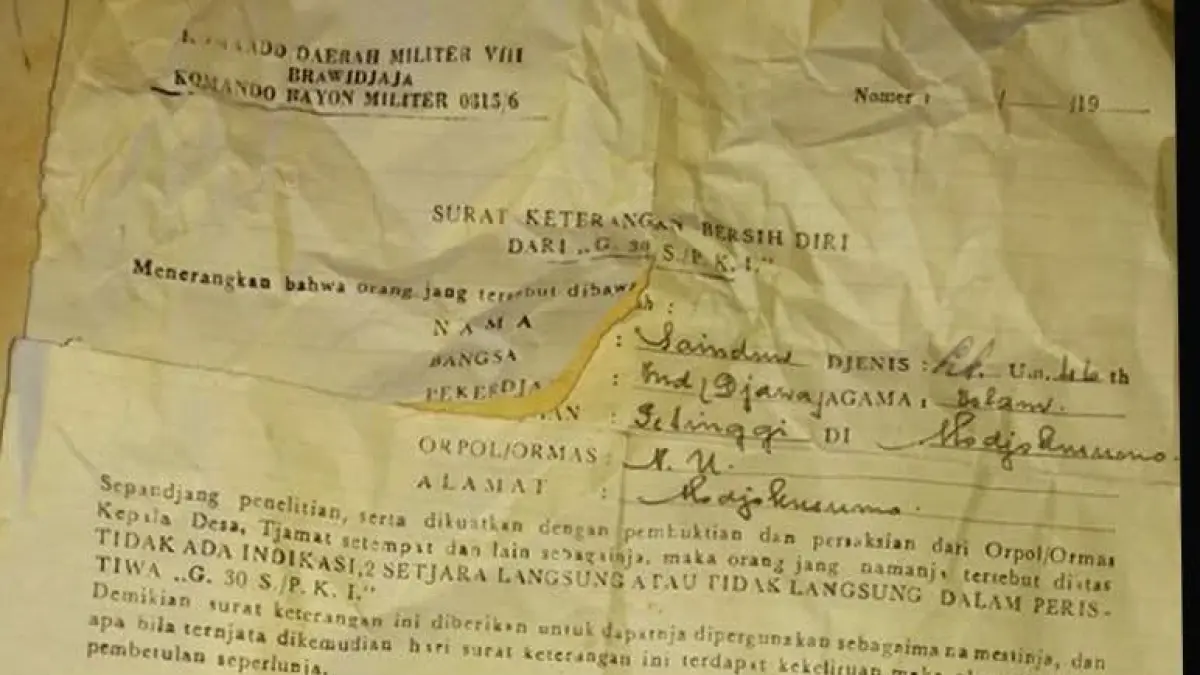 KOMANDO DAERAH MILITER VIII
BRAWIDJAJA
KOMANDO RAYON MILITER 0815/6
Nomer : / 19
SURAT KETERANGAN BERSIH DIRI
DARI „G. 30 S./P. K. I."
Menerangkan bahwa orang jang tersebut dibawah :
NAMA : DJENIS : Lk. U.m. th
BANGSA : Ind/Djawa AGAMA : Islam.
PEKERDJAAN : Petinggi DI Modjokusumo.
ORPOL/ORMAS : N. U.
ALAMAT : Modjokusumo.
Sepandjang penelitian, serta dikuatkan dengan pembuktian dan persaksian dari Orpol/Ormas
Kepala Desa, Tjamat setempat dan lain sebagainja, maka orang jang namanja tersebut diatas
TIDAK ADA INDIKASI,2 SETJARA LANGSUNG ATAU TIDAK LANGSUNG DALAM PERIS-
TIWA „G. 30 S./P. K. I."
Demikian surat keterangan ini diberikan untuk dapatnja dipergunakan sebagaimana mestinja, dan
apa bila ternjata dikemudian hari surat keterangan ini terdapat kekeliruan maka
pembetulan seperlunja.